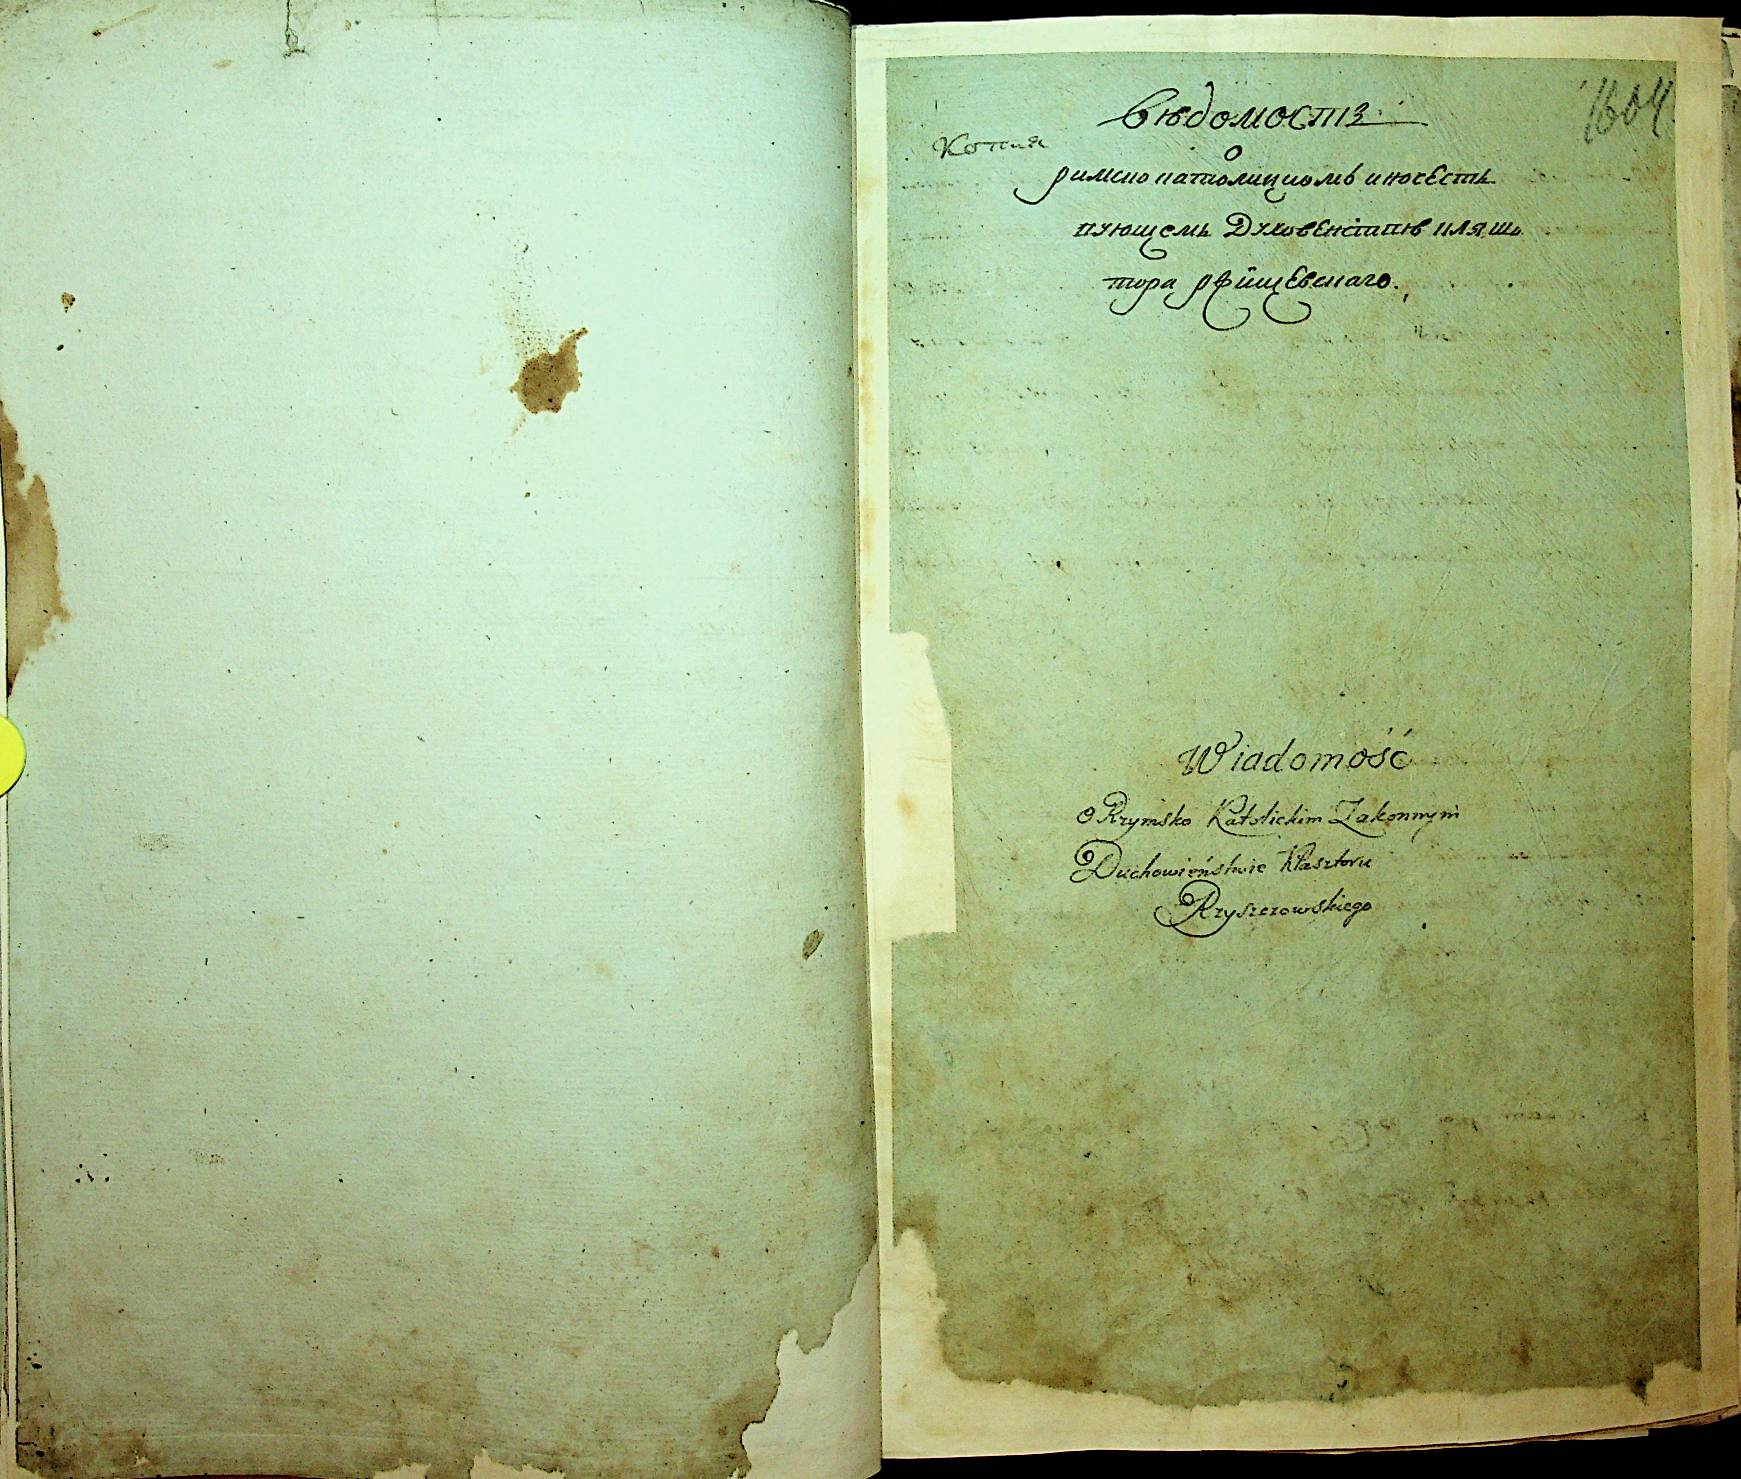 1604
Вѣдомость
Копия
о
римско католицкомъ иночест
вующемъ Духовенствѣ кляшо
тора рѣйщевскаго.
Wiadomość
o Rzymsko Katolickim Zakonnym
Duchowieństwie Klasztoru
Rzyszczowskiego